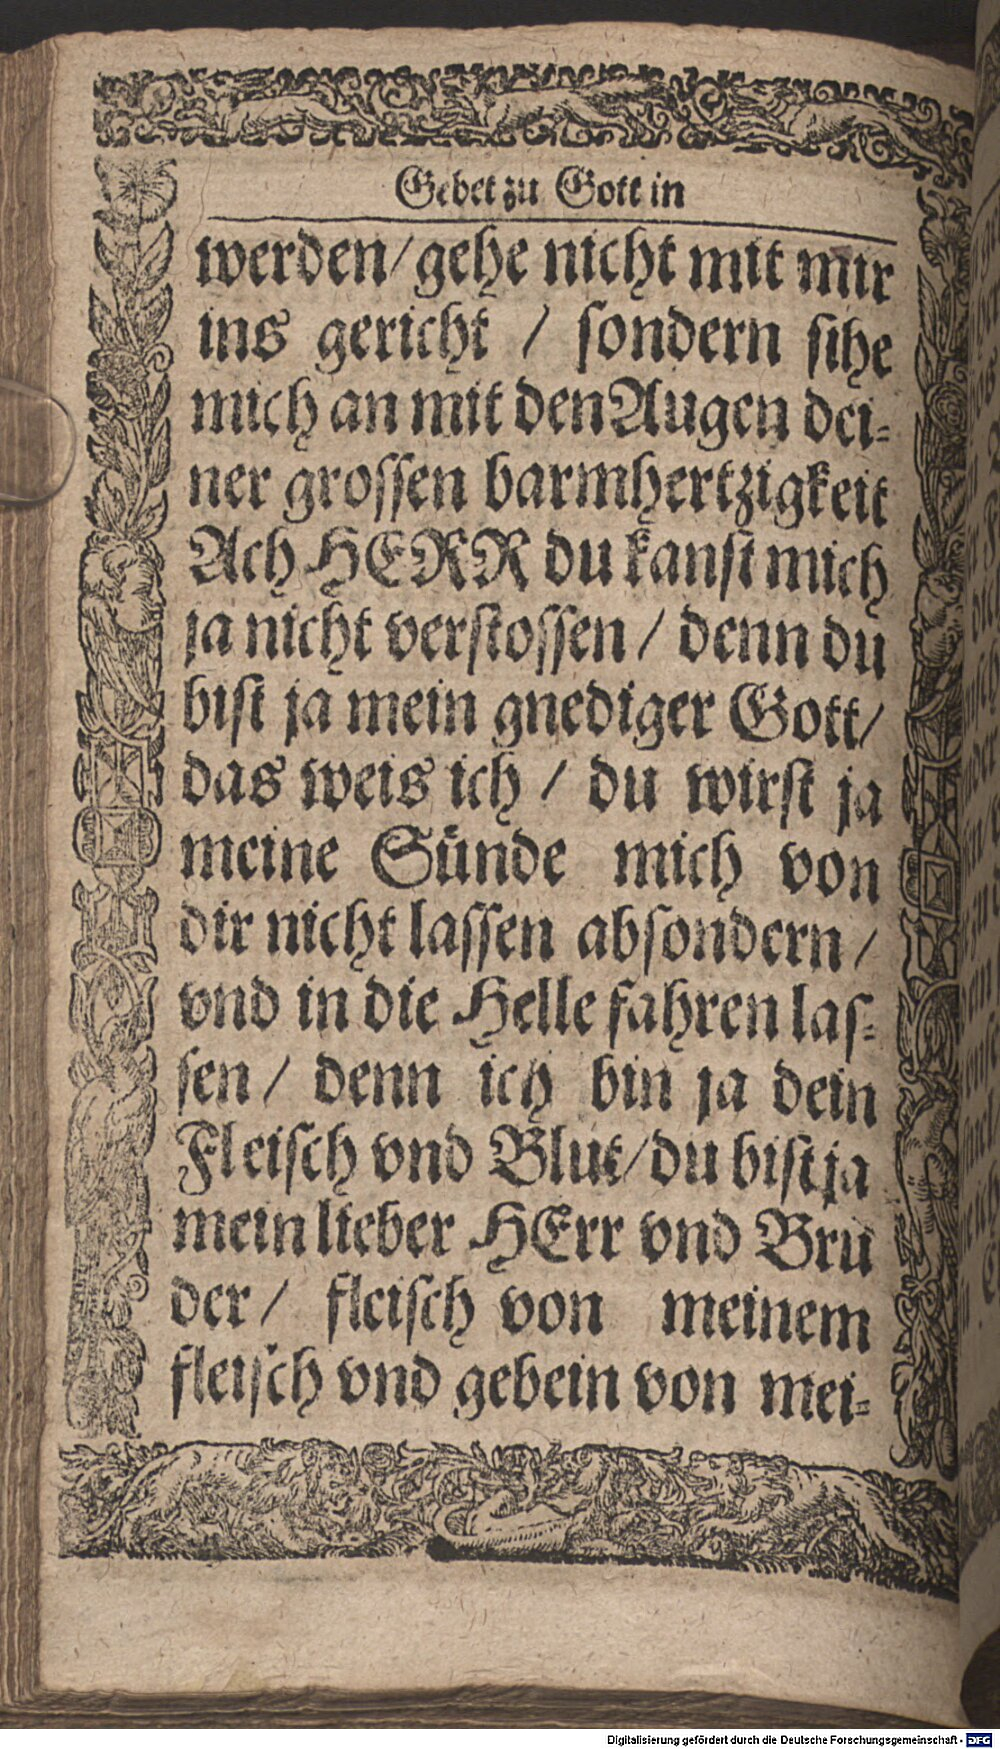 Gebet zu Gott in
werden/ gehe nicht mit mir
ins gericht / sondern sihe
mich an mit den Augen dei-
ner grossen barmhertzigkeit
Ach HERR du kanst mich
ja nicht verstossen / denn du
bist ja mein gnediger Gott/
das weis ich / du wirst ja
meine Sünde mich von
dir nicht lassen absondern /
vnd in die Helle fahren las-
sen / denn ich bin ja dein
Fleisch vnd Blut/ du bist ja
mein lieber HErr vnd Bru
der / fleisch von meinem
fleisch vnd gebein von mei-
Digitalisierung gefördert durch die Deutsche Forschungsgemeinschaft - DFG